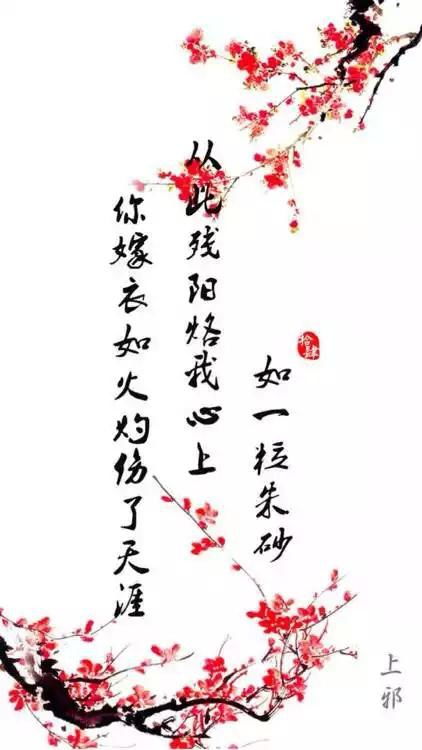 你嫁衣如火灼伤了天涯
从此残阳烙我心上
如一粒朱砂
拾肆
上邪